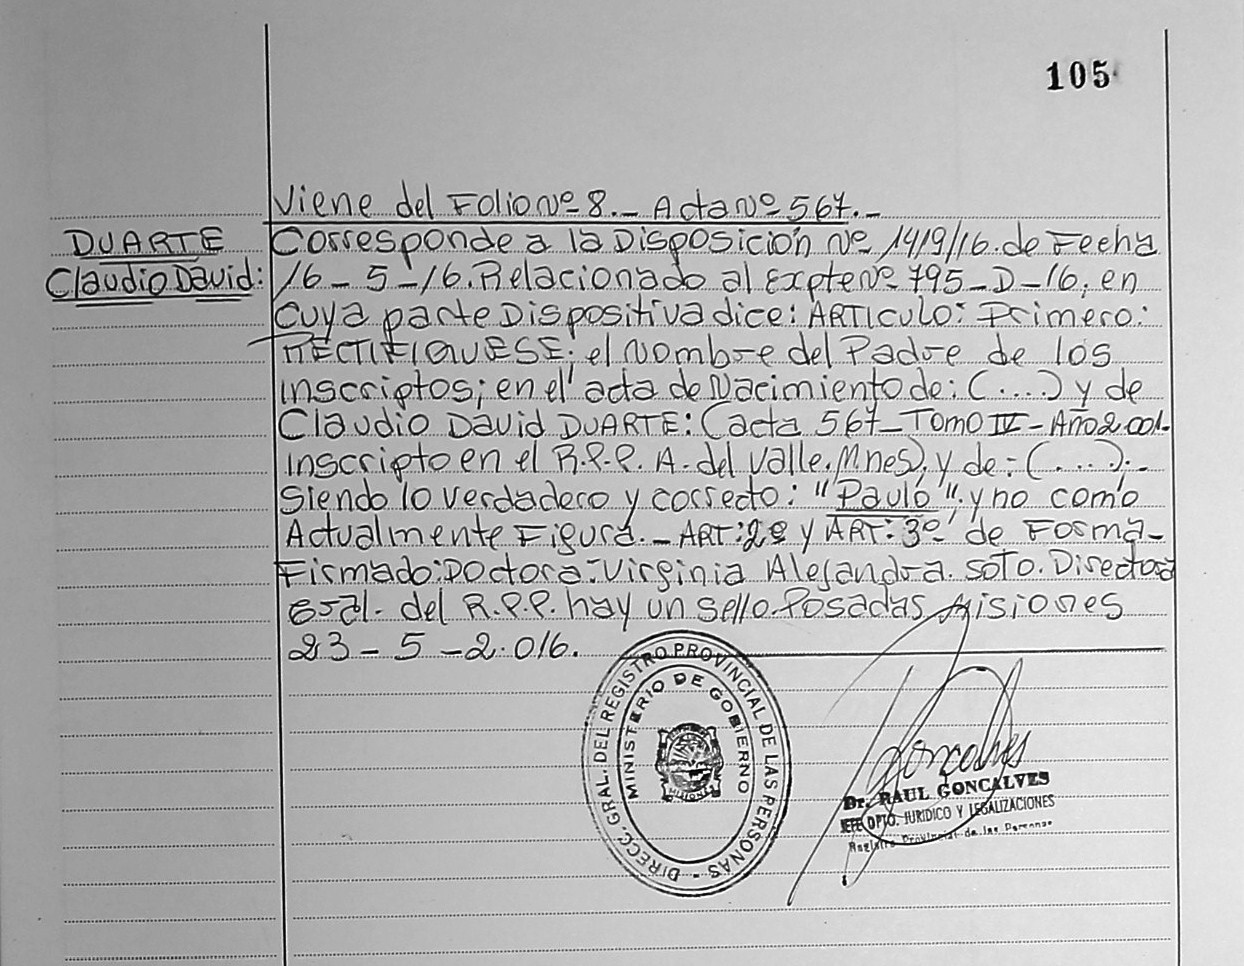 105
Viene del Folio Nº 8._ Acta Nº 567._
DUARTE
Claudio David:
Corresponde a la Disposición Nº 1419/16. de Fecha
16_5_16. Relacionado al Expte Nº 795_D_16, en
cuya parte Dispositiva dice: ARTICULO: Primero:
RECTIFIQUESE: el Nombre del Padre de los
inscriptos; en el acta de Nacimiento de: (....) y de
Claudio David DUARTE: (acta 567_Tomo IV_Año 2.001_
inscripto en el R.P.P. A. del Valle. Mnes), y de: (....)._
Siendo lo verdadero y correcto: "Paulo", y no como
Actualmente Figura._ ART: 2º y ART: 3º de Forma_
Firmado: Doctora: Virginia Alejandra. Soto. Directora
Gral. del R.P.P. hay un sello. Posadas Misiones
23_5_2.016.
DIRECC. GRAL. DEL REGISTRO PROVINCIAL DE LAS PERSONAS -
MINISTERIO DE GOBIERNO
MISIONES
Goncalves
Dr. RAUL GONCALVES
JEFE DPTO. JURIDICO Y LEGALIZACIONES
Registro Provincial de las Personas